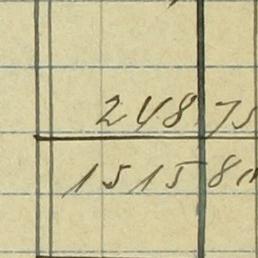 248 75
1515 8